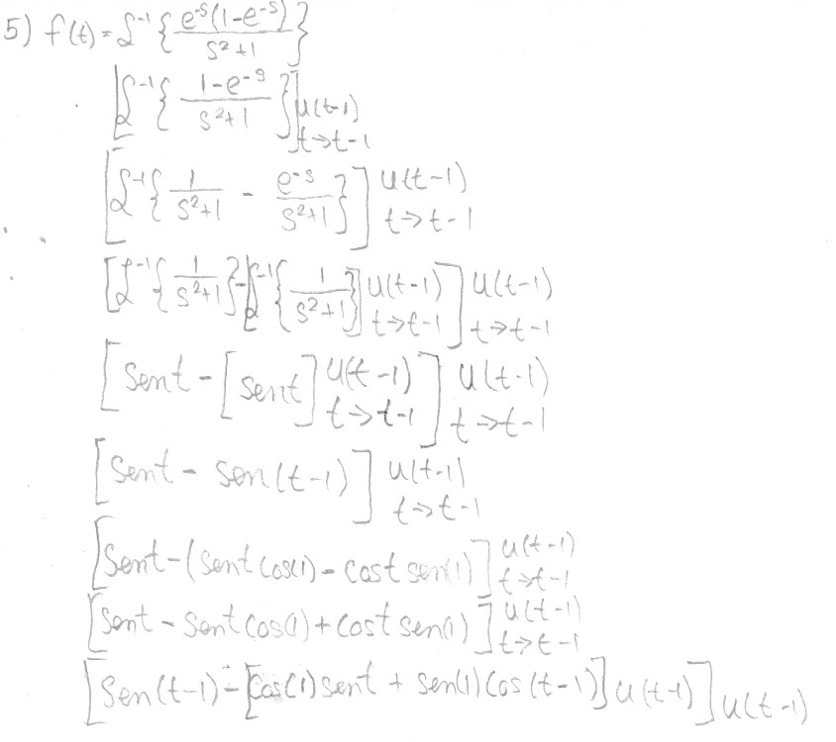 5) f(t) = ℒ⁻¹ { e⁻ˢ(1-e⁻ˢ) / s²+1 }
[ℒ⁻¹ { 1-e⁻ˢ / s²+1 }] u(t-1) t→t-1
[ℒ⁻¹ { 1 / s²+1 - e⁻ˢ / s²+1 }] u(t-1) t→t-1
[ℒ⁻¹ { 1 / s²+1 } - [ℒ⁻¹ { 1 / s²+1 }] u(t-1) t→t-1 ] u(t-1) t→t-1
[sent - [sent] u(t-1) t→t-1 ] u(t-1) t→t-1
[sent - sen(t-1)] u(t-1) t→t-1
[sent - (sent cos(1) - cost sen(1)] u(t-1) t→t-1
[sent - sent cos(1) + cost sen(1)] u(t-1) t→t-1
[sen(t-1) - [cos(1) sent + sen(1) cos(t-1)] u(t-1)] u(t-1)